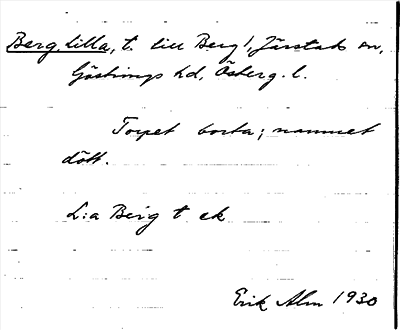 Berg, Lilla, t. till Berg 1, Järstads sn,
Göstrings hd, Österg. l.
Torpet borta; namnet
dött.
L:a Berg t ek
Erik Alm 1930